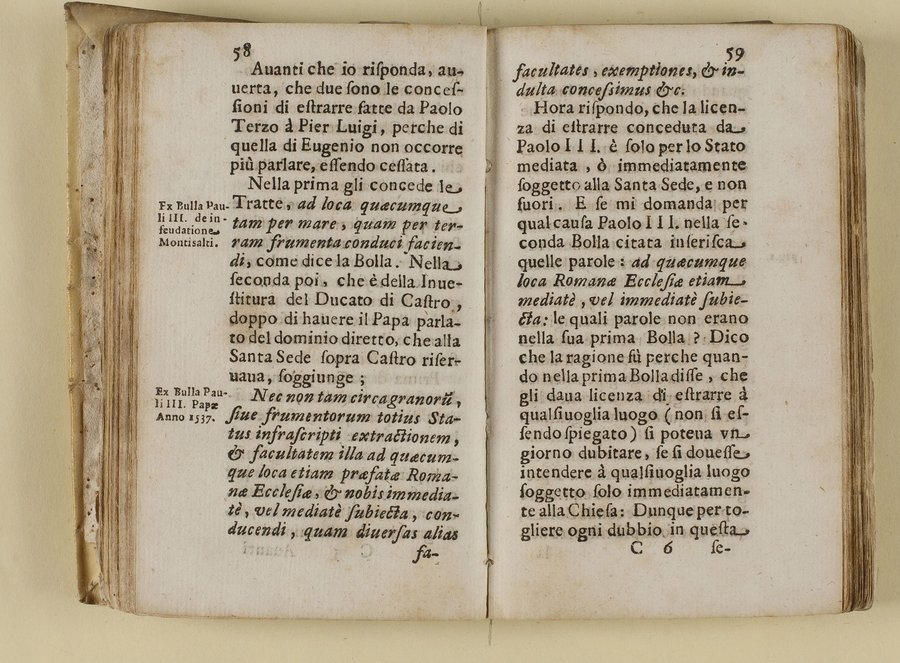 58
Auanti che io riſponda, au-
uerta, che due ſono le conceſ-
ſioni di eſtrarre fatte da Paolo
Terzo à Pier Luigi, perche di
quella di Eugenio non occorre
più parlare, eſſendo ceſſata.
Nella prima gli concede le
Ex Bulla Pau-
li III. de in-
feudatione
Montisalti.
Tratte, ad loca quæcumque
tam per mare, quam per ter-
ram frumenta conduci facien-
di, come dice la Bolla. Nella
ſeconda poi, che è della Inue-
ſtitura del Ducato di Caſtro,
doppo di hauere il Papa parla-
to del dominio diretto, che alla
Santa Sede ſopra Caſtro riſer-
uaua, ſoggiunge;
Ex Bulla Pau-
li III. Papæ
Anno 1537.
Nec non tam circa granorũ,
ſiue frumentorum totius Sta-
tus infraſcripti extractionem,
& facultatem illa ad quæcum-
que loca etiam præfatæ Roma-
næ Eccleſiæ, & nobis immedia-
tè, vel mediatè ſubiecta, con-
ducendi, quam diuerſas alias
fa-
59
facultates, exemptiones, & in-
dulta conceſsimus &c.
Hora riſpondo, che la licen-
za di eſtrarre conceduta da
Paolo III. è ſolo per lo Stato
mediata, ò immediatamente
ſoggetto alla Santa Sede, e non
fuori. E ſe mi domanda per
qual cauſa Paolo III. nella ſe-
conda Bolla citata inſeriſca
quelle parole: ad quæcumque
loca Romanæ Eccleſiæ etiam
mediatè, vel immediatè ſubie-
cta: le quali parole non erano
nella ſua prima Bolla? Dico
che la ragione fù perche quan-
do nella prima Bolla diſſe, che
gli daua licenza di eſtrarre à
qualſiuoglia luogo (non ſi eſ-
ſendo ſpiegato) ſi poteua vn
giorno dubitare, ſe ſi doueſſe
intendere à qualſiuoglia luogo
ſoggetto ſolo immediatamen-
te alla Chieſa: Dunque per to-
gliere ogni dubbio in queſta
C 6
ſe-